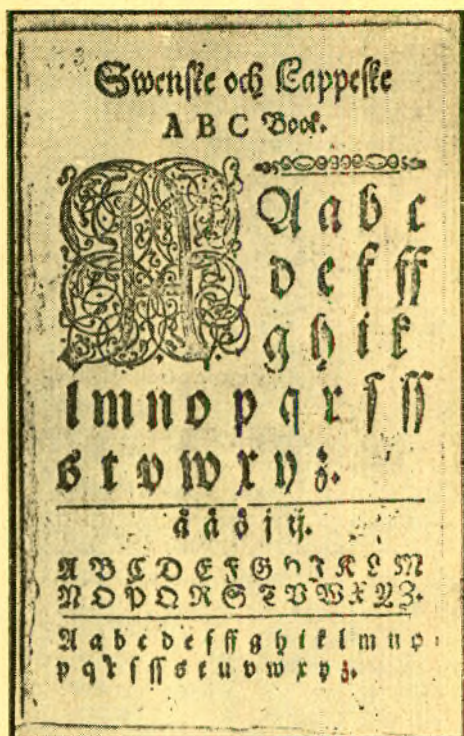 Swenske och Lappeske
A B C Book.
A a b c
d e f ff
g h i k
l m n o p q r ſ ſſ
s t v w x y z.
å ä ö j ij.
A B C D E F G H I K L M
N O P Q R S T V W X Y Z.
A a b c d e f ff g h i k l m n o
p q r ſ ſſ s t u v w x y z.